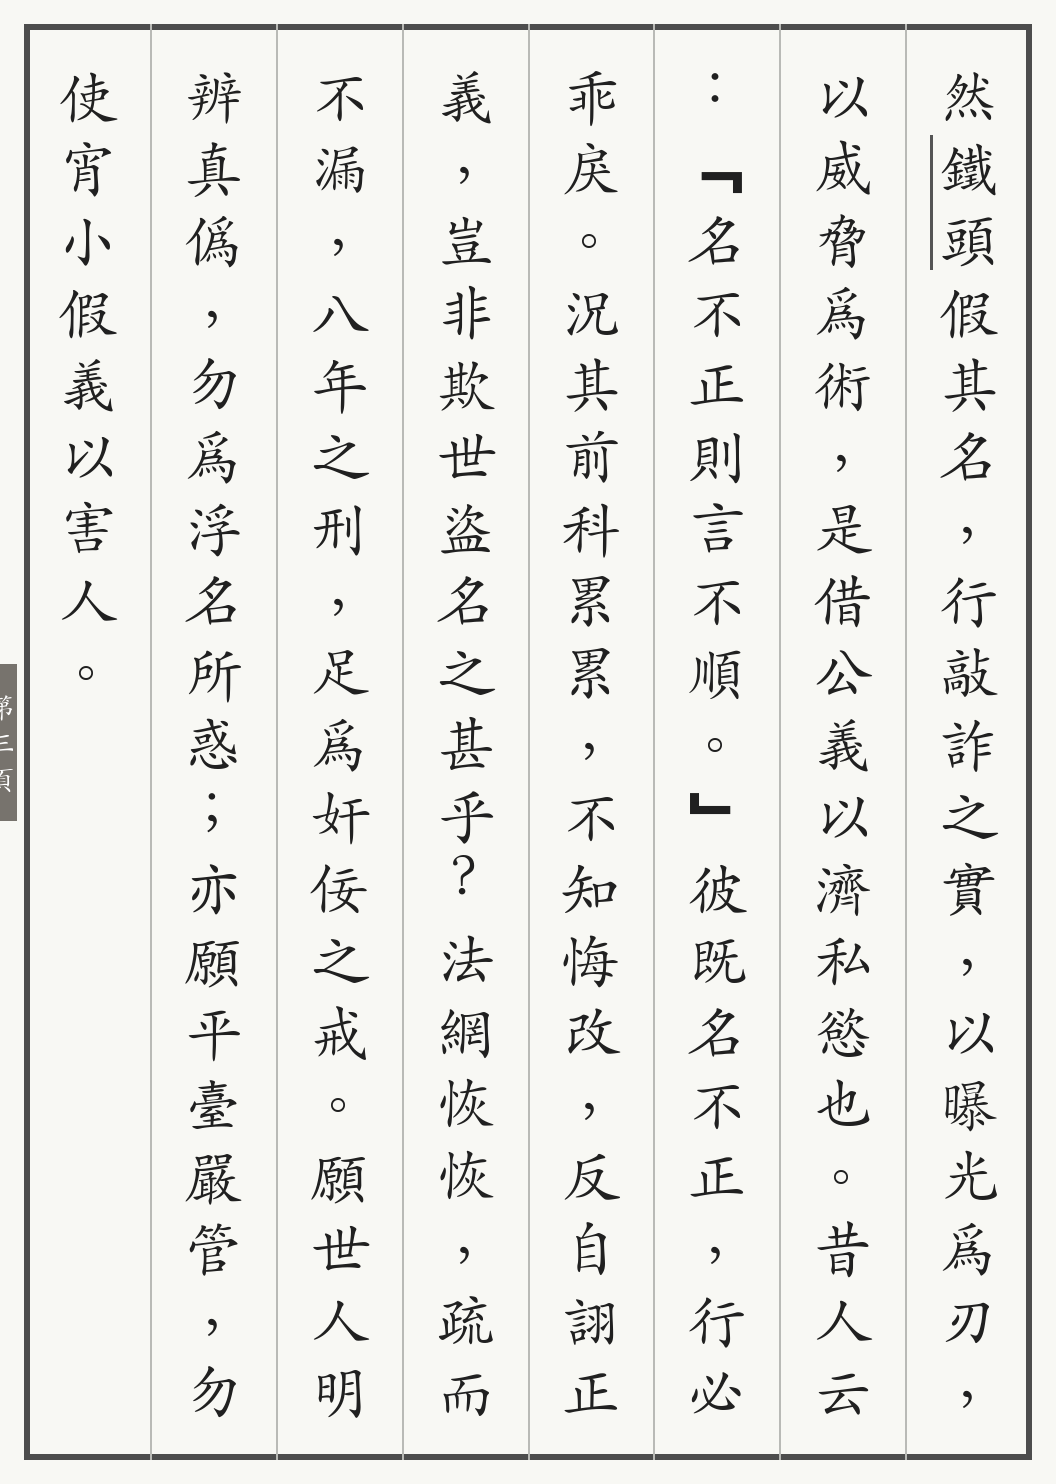 然鐵頭假其名，行敲詐之實，以曝光爲刃，
以威脅爲術，是借公義以濟私慾也。昔人云
：『名不正則言不順。』彼既名不正，行必
乖戾。況其前科累累，不知悔改，反自詡正
義，豈非欺世盜名之甚乎？法網恢恢，疏而
不漏，八年之刑，足爲奸佞之戒。願世人明
辨真僞，勿爲浮名所惑；亦願平臺嚴管，勿
使宵小假義以害人。
第三頁